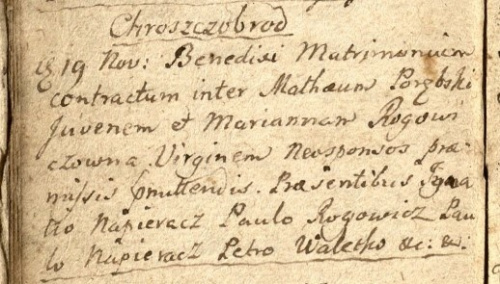 Chroszczobrod
19 Nov: Benedixi Matrimonium
contractum inter Mathæum Porębski
Juvenem et Mariannam Rogowi
czowna Virginem Neosponsos præ
missis pmittendis. Præsentibus Igna
tio Napieracz Paulo Rogowicz Pau
lo Napieracz Petro Waletko &c: &.